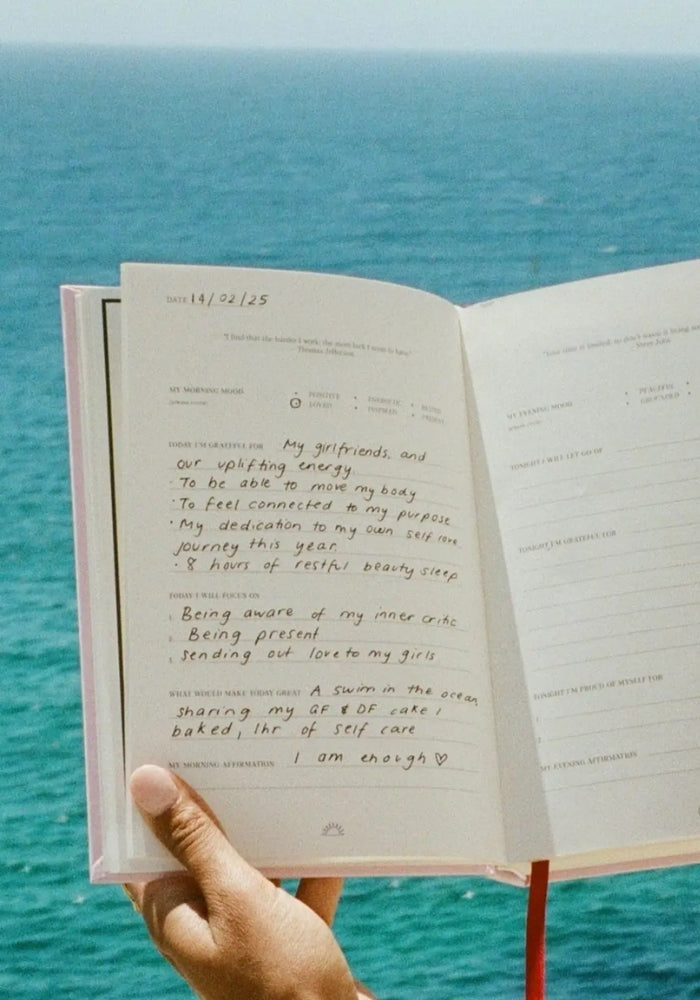 DATE 14/02/25
"I find that the harder I work, the more luck I seem to have"
- Thomas Jefferson
MY MORNING MOOD
POSITIVE
ENERGETIC
LOVED
INSPIRED
TODAY I'M GRATEFUL FOR My girlfriends, and
our uplifting energy.
· To be able to move my body
· To feel connected to my purpose
· My dedication to my own self love
journey this year.
· 8 hours of restful beauty sleep
TODAY I WILL FOCUS ON
1 Being aware of my inner critic
2 Being present
3 sending out love to my girls
WHAT WOULD MAKE TODAY GREAT A swim in the ocean,
sharing my GF & DF cake I
baked, 1hr of self care
MY MORNING AFFIRMATION I am enough ♡
"Your time is limited, so don't waste it living
- Steve Jobs
MY EVENING MOOD
PEACEFUL
GROUNDED
TONIGHT I WILL LET GO OF
TONIGHT I'M GRATEFUL FOR
TONIGHT I'M PROUD OF MYSELF FOR
1
2
MY EVENING AFFIRMATION